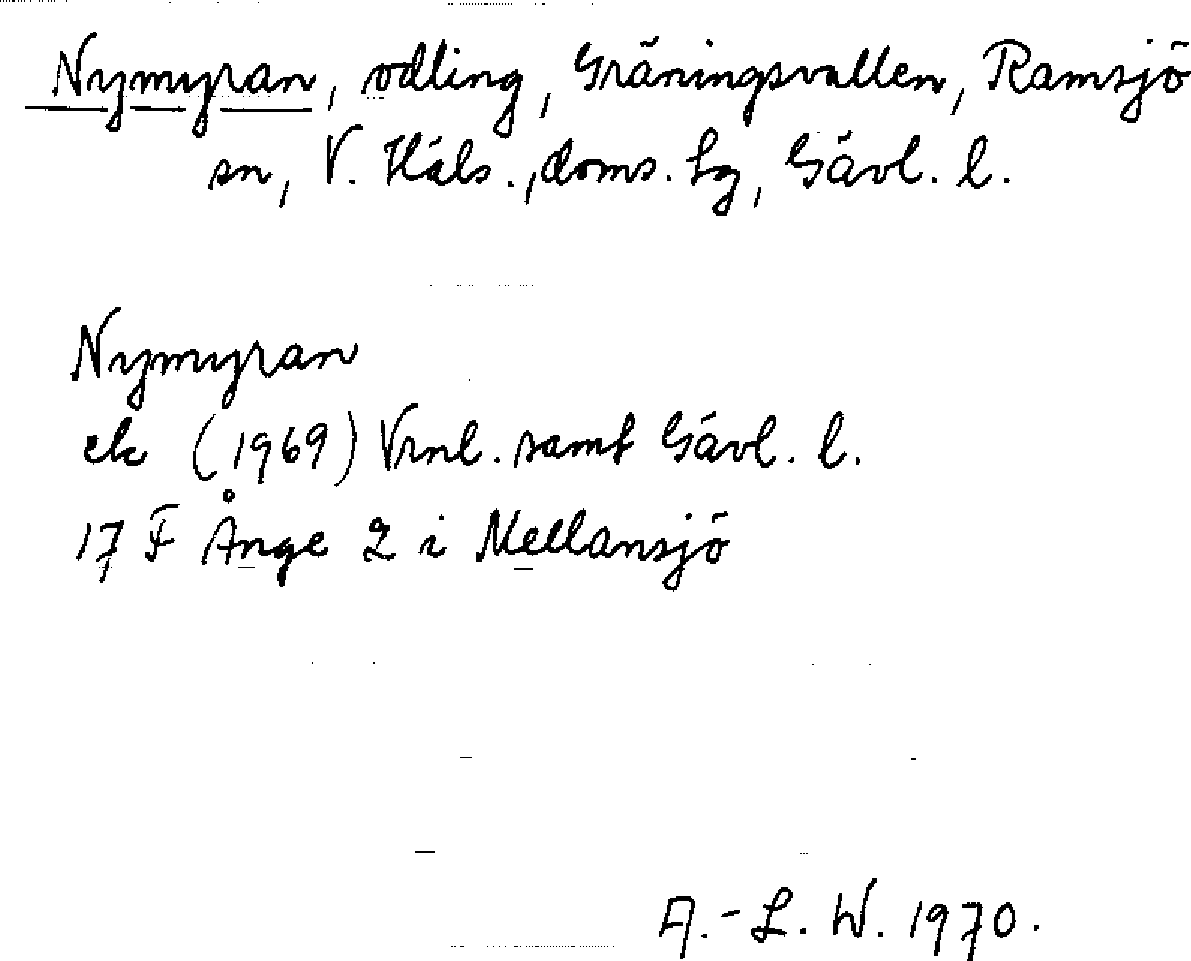 Nymyran, odling, Gräningsvallen, Ramsjö
sn, V. Häls., doms. hg, Gävl. l.
Nymyran
ek (1969) Vrnl. samt Gävl. l.
17 F Ånge 2 i Mellansjö
A.-L. W. 1970.